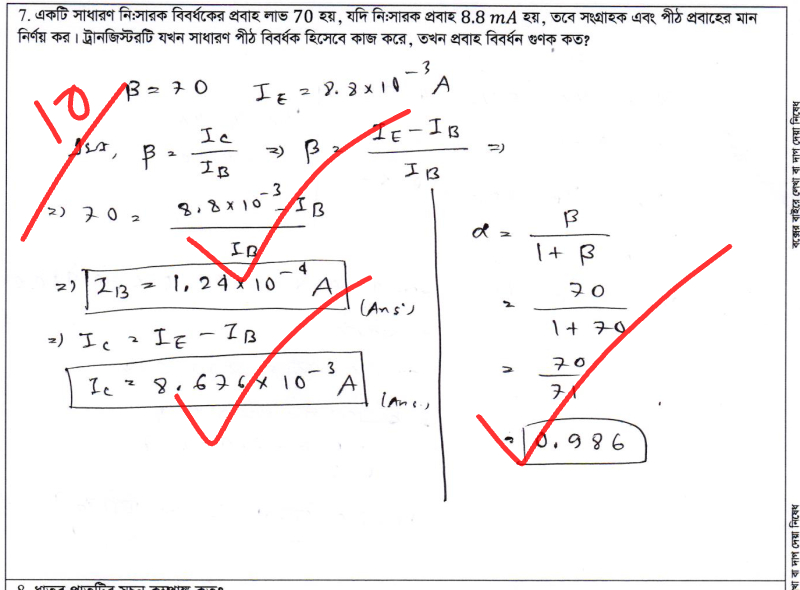 7. একটি সাধারণ নিঃসারক বিবর্ধকের প্রবাহ লাভ 70 হয়, যদি নিঃসারক প্রবাহ 8.8 mA হয়, তবে সংগ্রাহক এবং পীঠ প্রবাহের মান
নির্ণয় কর। ট্রানজিস্টরটি যখন সাধারণ পীঠ বিবর্ধক হিসেবে কাজ করে, তখন প্রবাহ বিবর্ধন গুণক কত?
10
β = 70 I_E = 8.8 × 10^-3 A
β = I_C / I_B ⇒ β = (I_E - I_B) / I_B ⇒
⇒ 70 = (8.8 × 10^-3 - I_B) / I_B
⇒ I_B = 1.24 × 10^-4 A (Ans:)
⇒ I_C = I_E - I_B
I_C = 8.676 × 10^-3 A (Ans:)
α = β / (1 + β)
= 70 / (1 + 70)
= 70 / 71
= 0.986
বক্সের বাইরে লেখা বা দাগ দেয়া নিষেধ
খা বা দাগ দেয়া নিষেধ